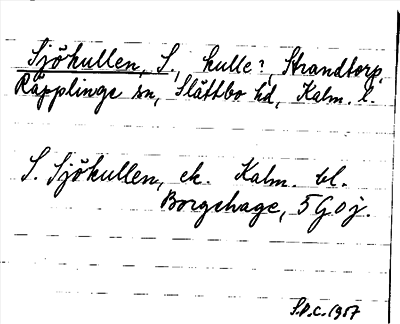 Sjökullen, S., kulle?, Strandtorp,
Räpplinge sn, Slättbo hd, Kalm. l.
S. Sjökullen, ek. Kalm. bl.
Borgehage, 5 G 0 j.
S.D.C. 1957